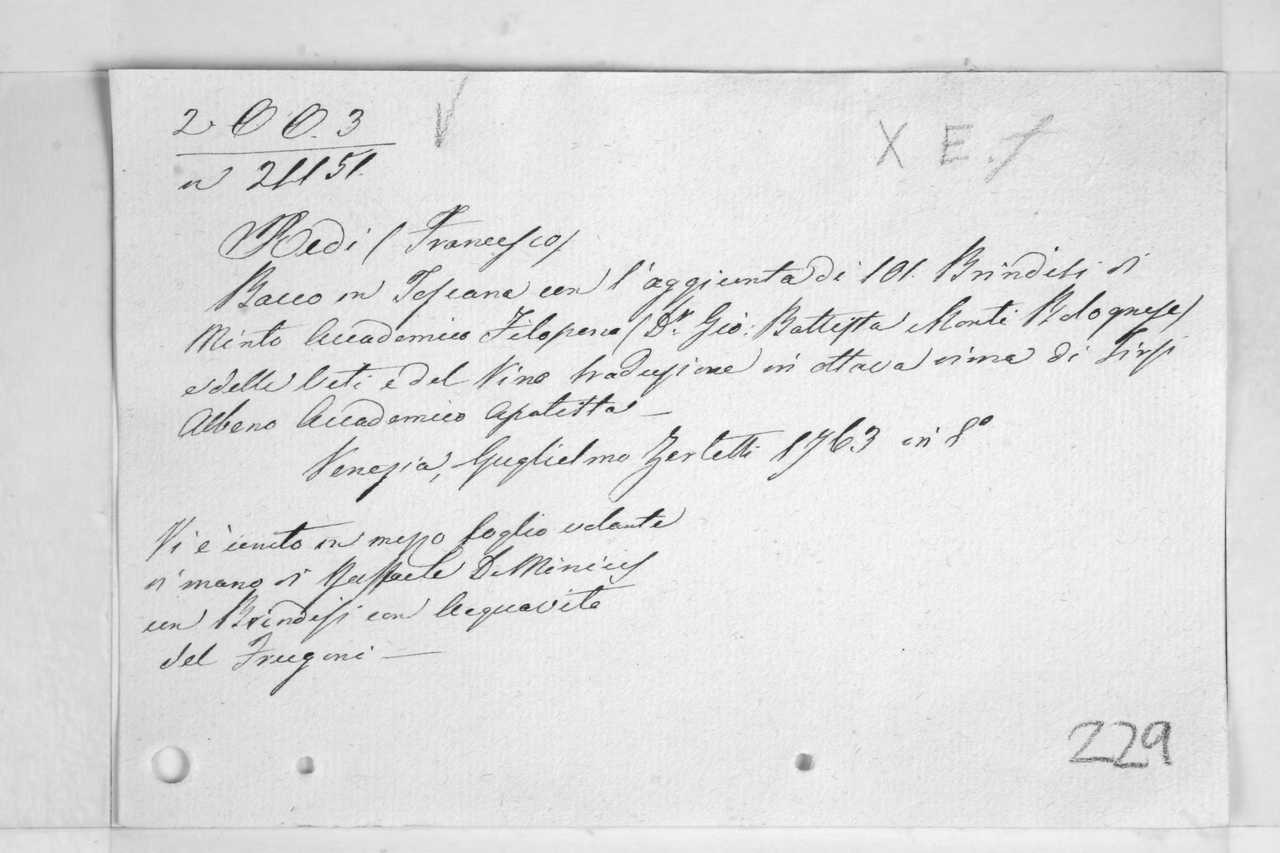 2 O O. 3
X E. f
n 21151.
Redi (Francesco)
Bacco in Toscana con l'aggiunta di 101. Brindisi di
Minto Accademico Filopono (Dr. Gio: Battista Monti Bolognese)
e delle Viti e del Vino traduzione in ottava rima di Tirsi
Albeno Accademico Apatista —
Venezia, Guglielmo Zerletti 1763 in 8°
Vi è unito in mezzo foglio volante
di mano di Raffaele De Minicis
un Brindisi con Acquavita
del Frugoni —
229